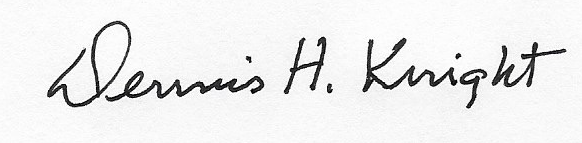 Dennis H. Knight